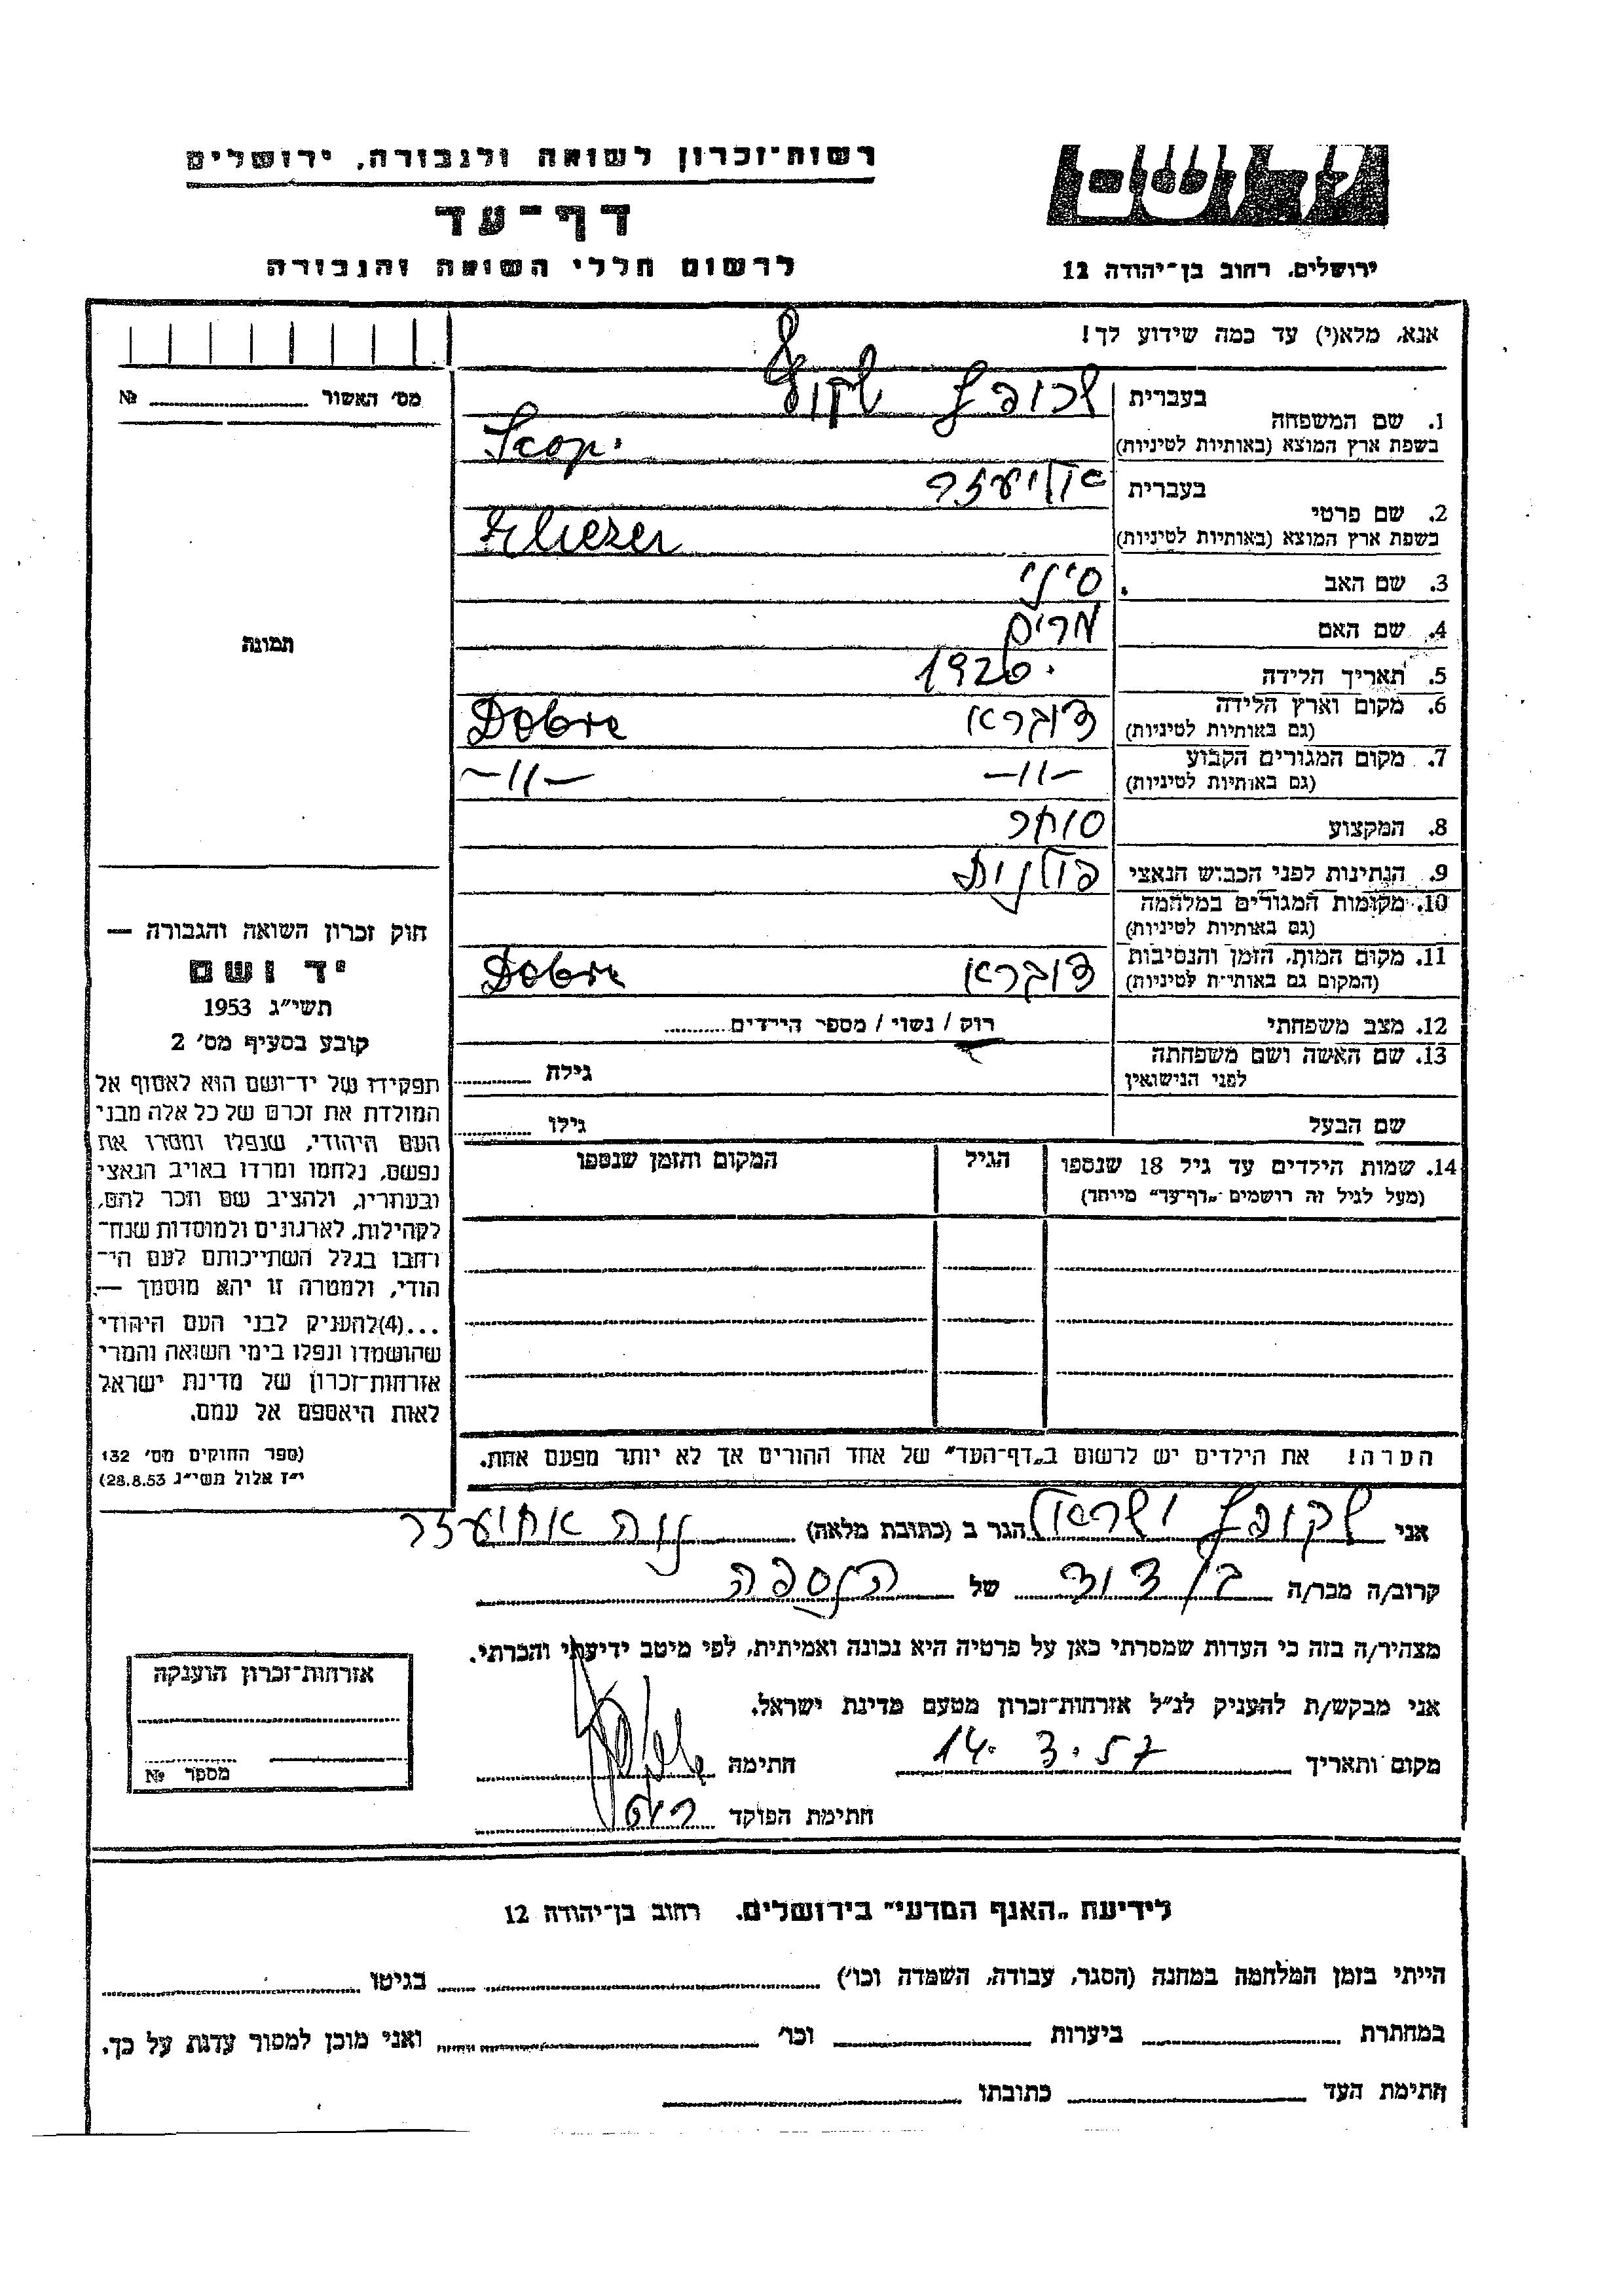 רשות־זכרון לשואה ולגבורה, ירושלים
דף־עד
לרשום חללי השואה והגבורה
ירושלים, רחוב בן־יהודה 12
אנא, מלא(י) עד כמה שידוע לך!
מס' האשור № 
1. שם המשפחה
בעברית
בשפת ארץ המוצא (באותיות לטיניות) Scop
2. שם פרטי
בעברית אליעזר
בשפת ארץ המוצא (באותיות לטיניות) Eliezer
3. שם האב סיני
4. שם האם מרים
5. תאריך הלידה 1920
6. מקום וארץ הלידה דוברא Dobre
(גם באותיות לטיניות)
7. מקום המגורים הקבוע –11– –11–
(גם באותיות לטיניות)
8. המקצוע סוחר
9. הנתינות לפני הכבוש הנאצי פולנית
10. מקומות המגורים במלחמה
(גם באותיות לטיניות)
11. מקום המות, הזמן והנסיבות דוברא Dobre
(המקום גם באותיות לטיניות)
12. מצב משפחתי רוק / נשוי / מספר הילדים
13. שם האשה ושם משפחתה גילה
לפני הנישואין
שם הבעל גילו
14. שמות הילדים עד גיל 18 שנספו הגיל המקום והזמן שנספו
(מעל לגיל זה רושמים „דף־עד" מיוחד)
הערה! את הילדים יש לרשום ב„דף־העד" של אחד ההורים אך לא יותר מפעם אחת.
תמונה
חוק זכרון השואה והגבורה —
יד ושם
תשי"ג 1953
קובע בסעיף מס' 2
תפקידו של יד־ושם הוא לאסוף אל
המולדת את זכרם של כל אלה מבני
העם היהודי, שנפלו ומסרו את
נפשם, נלחמו ומרדו באויב הנאצי
ובעוזריו, ולהציב שם וזכר להם,
לקהילות, לארגונים ולמוסדות שנח־
רחבו בגלל השתייכותם לעם הי־
הודי, ולמטרה זו יהא מוסמך —
...(4)להעניק לבני העם היהודי
שהושמדו ונפלו בימי השואה והמרי
אזרחות־זכרון של מדינת ישראל
לאות היאספם אל עמם.
(ספר החוקים מס' 132
י"ז אלול תשי"ג 28.8.53)
אני שקופ ישראל הגר ב (כתובת מלאה) נוה אחיעזר
קרוב/ה מכר/ה בן דוד של הנספה
מצהיר/ה בזה כי העדות שמסרתי כאן על פרטיה היא נכונה ואמיתית, לפי מיטב ידיעתי והכרתי.
אני מבקש/ת להעניק לנ"ל אזרחות־זכרון מטעם מדינת ישראל.
מקום ותאריך 14. 3. 57 חתימה
חתימת הפוקד
אזרחות־זכרון הוענקה
מספר №
לידיעת „האגף המדעי" בירושלים, רחוב בן־יהודה 12
הייתי בזמן המלחמה במחנה (הסגר, עבודה, השמדה וכו') בגיטו
במחתרת ביערות וכו' ואני מוכן למסור עדות על כך.
חתימת העד כתובתו